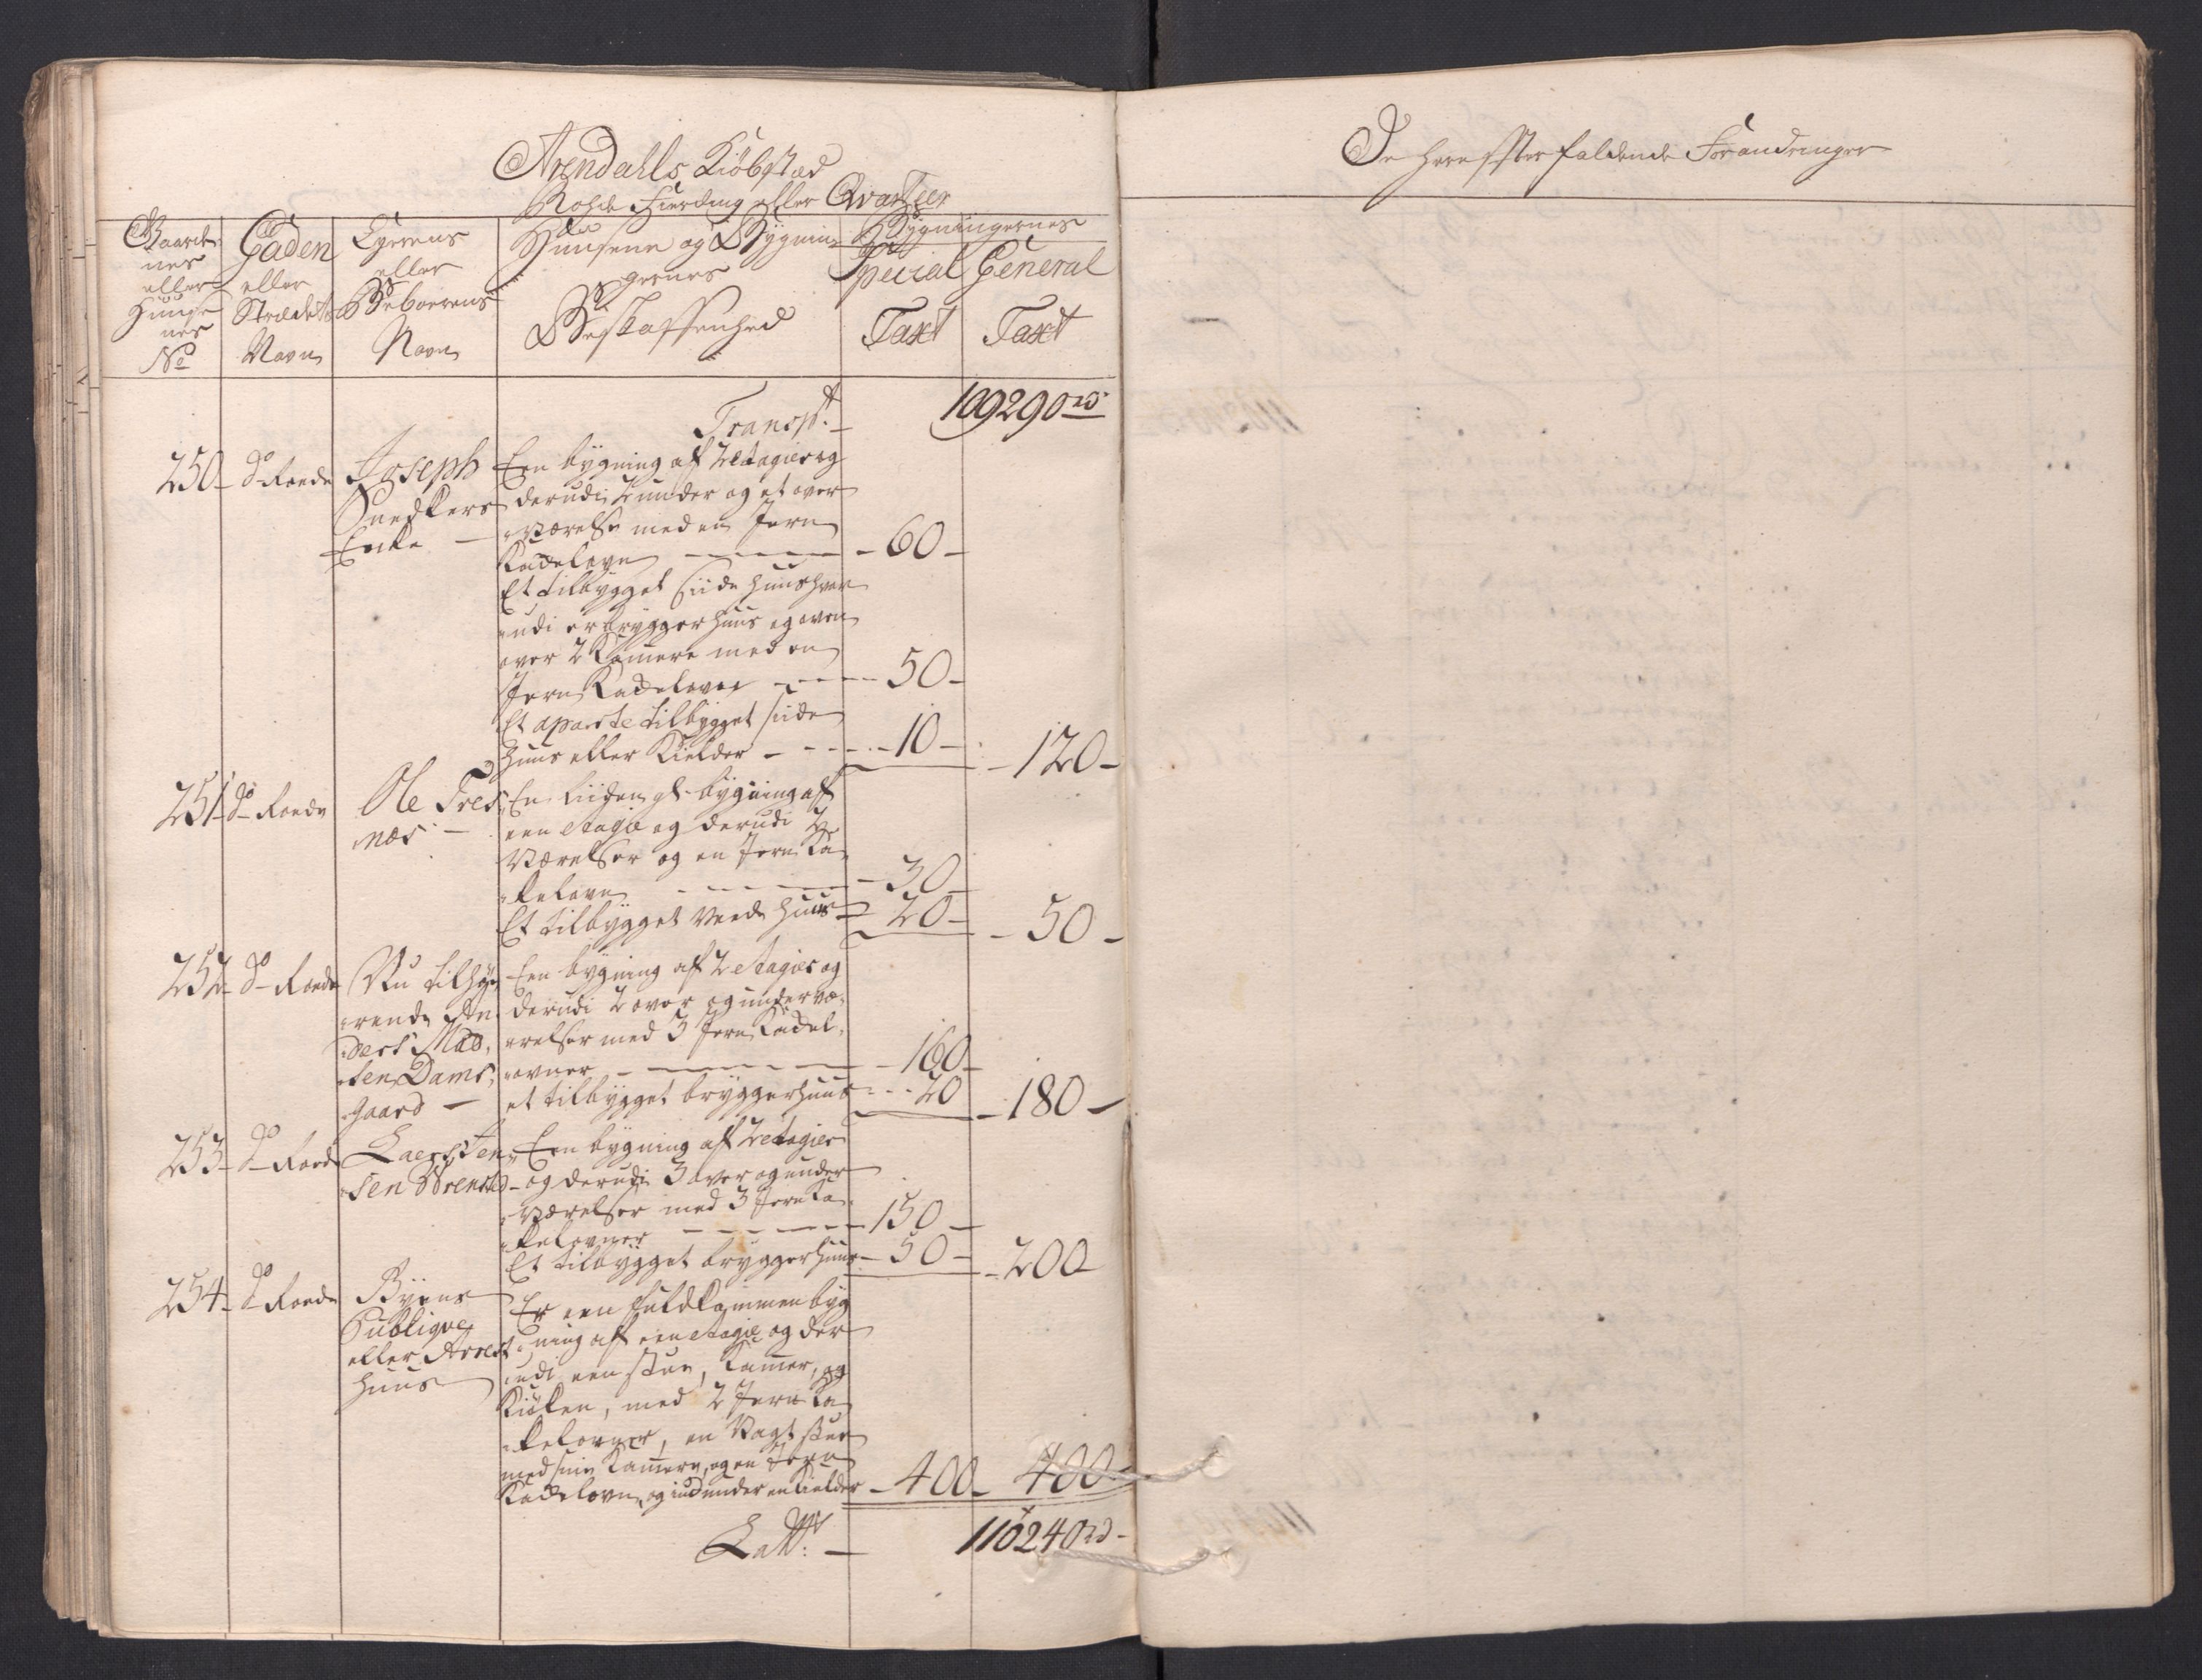 Arendahls Kiöbstæd
Rohde Fierding eller Qvarteer
Gaarde
nes
eller
Huuse
nes
No
Gaden
eller
Strædets
Navn
Eyerens
eller
Beboerens
Navn
Huusene og Bygnin
gernes
Beskaffenhed
Bygningernes
Special
Taxt
General
Taxt
Transpt. — 109290 rd
250 — do Roede
Joseph
Snedkers
Encke —
Een bygning af 2 etagier og
derudi 2 under og et over
Værelse med en Jern
Kackelovn — 60 —
Et tilbygget siide huus hvor
udi er bryggerhuus og oven
over 2 Kamere med en
Jern Kackelovn — 50 —
Et aparte tilbygget siide
huus eller Kielder — 10 — 120 —
251 — do Roede
Ole Tres
næs —
En liiden gl. bygning af
een etagie og derudi 2
Værelser og en Jern Ka
kelovn — 30 —
Et tilbygget Veede huus — 20 — 50 —
252 — do Roede
Nu tilhø
rende An
ders Mad
sen Dams
gaard —
Een bygning af 2 etagier og
derudi 2 over og under væ
relser med 3 Jern Kackel
ovner — 160 —
et tilbygget bryggerhuus — 20 — 180 —
253 — do Roede
Laers Jen
sen Brensted
Een bygning af 2 etagier
og derudi 3 over og under
Værelser med 3 Jern Ka
kelovner — 150 —
Et tilbygget bryggerhuus — 50 — 200
254 — do Roede
Byens
Publiqve
eller Arrest
huus
Er een fuldkommen byg
ning af een etagie og der
udi een stue, Kamer, og
Kiøken, med 2 Jern Ka
kelovner, en Vagt stue
med sine Kamere, og en Jern
Kackelovn, og ind under en Kielder — 400 — 400
Latr: — 110240 rd —
De herefter faldende Forandringer